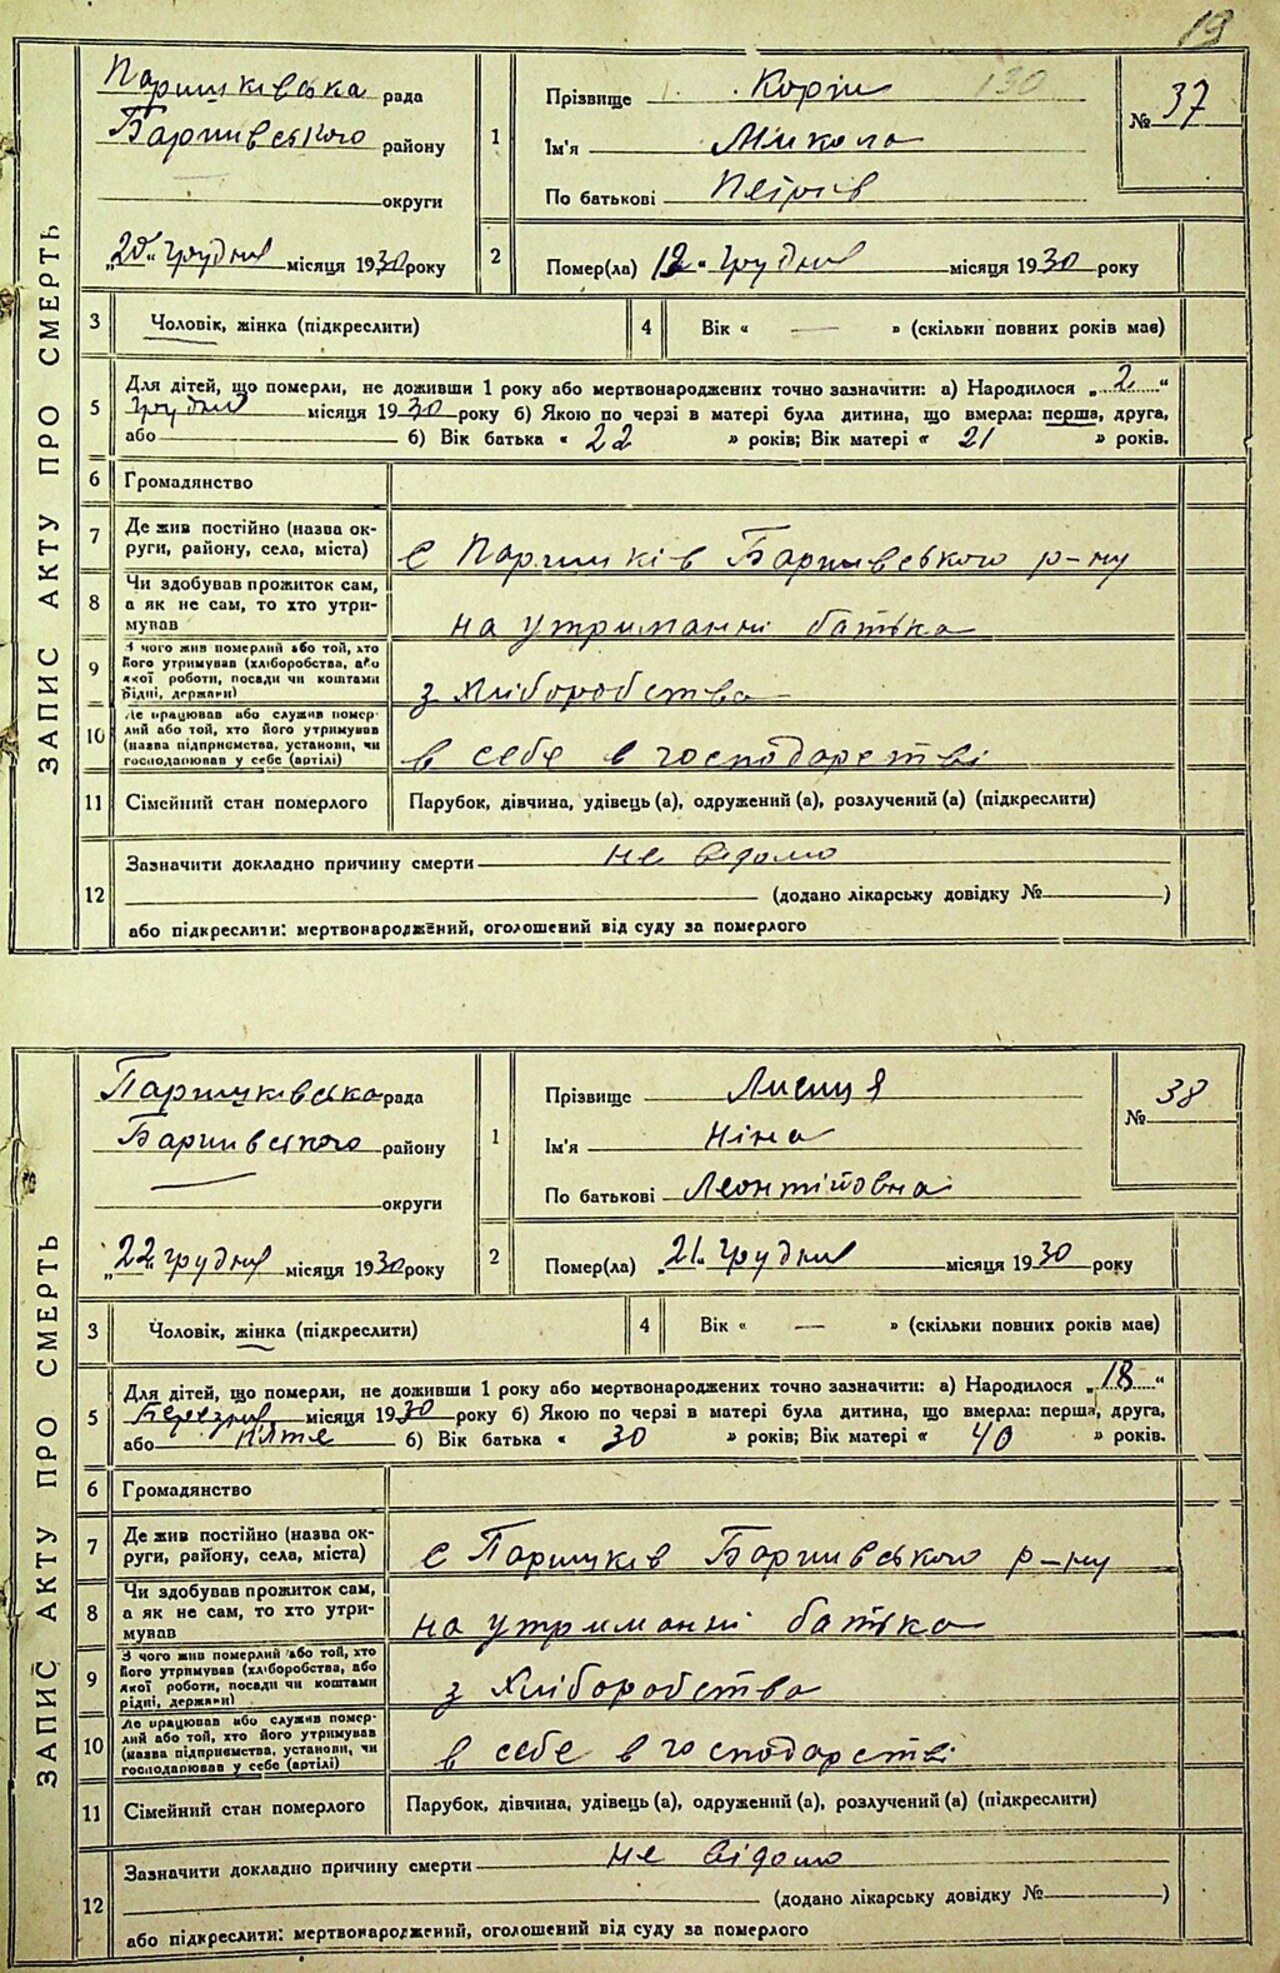 19
ЗАПИС АКТУ ПРО СМЕРТЬ
Паришківська рада
Баришівського району
округи
„20“ грудня місяця 1930 року
1 Прізвище Корж 130
Ім'я Микола
По батькові Петрів
№ 37
2 Помер(ла) 12 „ грудня місяця 1930 року
3 Чоловік, жінка (підкреслити)
4 Вік « — » (скільки повних років має)
5 Для дітей, що померли, не доживши 1 року або мертвонароджених точно зазначити: а) Народилося „2“
грудня місяця 1930 року б) Якою по черзі в матері була дитина, що вмерла: перша, друга,
або б) Вік батька « 22 » років; Вік матері « 21 » років.
6 Громадянство
7 Де жив постійно (назва ок-
руги, району, села, міста) с Паришків Баришівського р-ну
8 Чи здобував прожиток сам,
а як не сам, то хто утри-
мував на утриманні батька
9 З чого жив померлий або той, хто
його утримував (хліборобства, або
якої роботи, посади чи коштами
рідні, держави) з хліборобства
10 Де працював або служив помер-
лий або той, хто його утримував
(назва підприємства, установи, чи
господарював у себе (артілі) в себе в господарстві
11 Сімейний стан померлого Парубок, дівчина, удівець (а), одружений (а), розлучений (а) (підкреслити)
12 Зазначити докладно причину смерти не відомо
(додано лікарську довідку № )
або підкреслити: мертвонароджений, оголошений від суду за померлого
ЗАПИС АКТУ ПРО СМЕРТЬ
Паришківська рада
Баришівського району
округи
„22“ грудня місяця 1930 року
1 Прізвище Лисиця
Ім'я Ніна
По батькові Леонтійовна
№ 38
2 Помер(ла) „21“ грудня місяця 1930 року
3 Чоловік, жінка (підкреслити)
4 Вік « — » (скільки повних років має)
5 Для дітей, що померли, не доживши 1 року або мертвонароджених точно зазначити: а) Народилося „18“
Березня місяця 1930 року б) Якою по черзі в матері була дитина, що вмерла: перша, друга,
або п'яте б) Вік батька « 30 » років; Вік матері « 40 » років.
6 Громадянство
7 Де жив постійно (назва ок-
руги, району, села, міста) с Паришків Баришівського р-ну
8 Чи здобував прожиток сам,
а як не сам, то хто утри-
мував на утриманні батька
9 З чого жив померлий або той, хто
його утримував (хліборобства, або
якої роботи, посади чи коштами
рідні, держави) з хліборобства
10 Де працював або служив помер-
лий або той, хто його утримував
(назва підприємства, установи, чи
господарював у себе (артілі) в себе в господарстві
11 Сімейний стан померлого Парубок, дівчина, удівець (а), одружений (а), розлучений (а) (підкреслити)
12 Зазначити докладно причину смерти не відомо
(додано лікарську довідку № )
або підкреслити: мертвонароджений, оголошений від суду за померлого